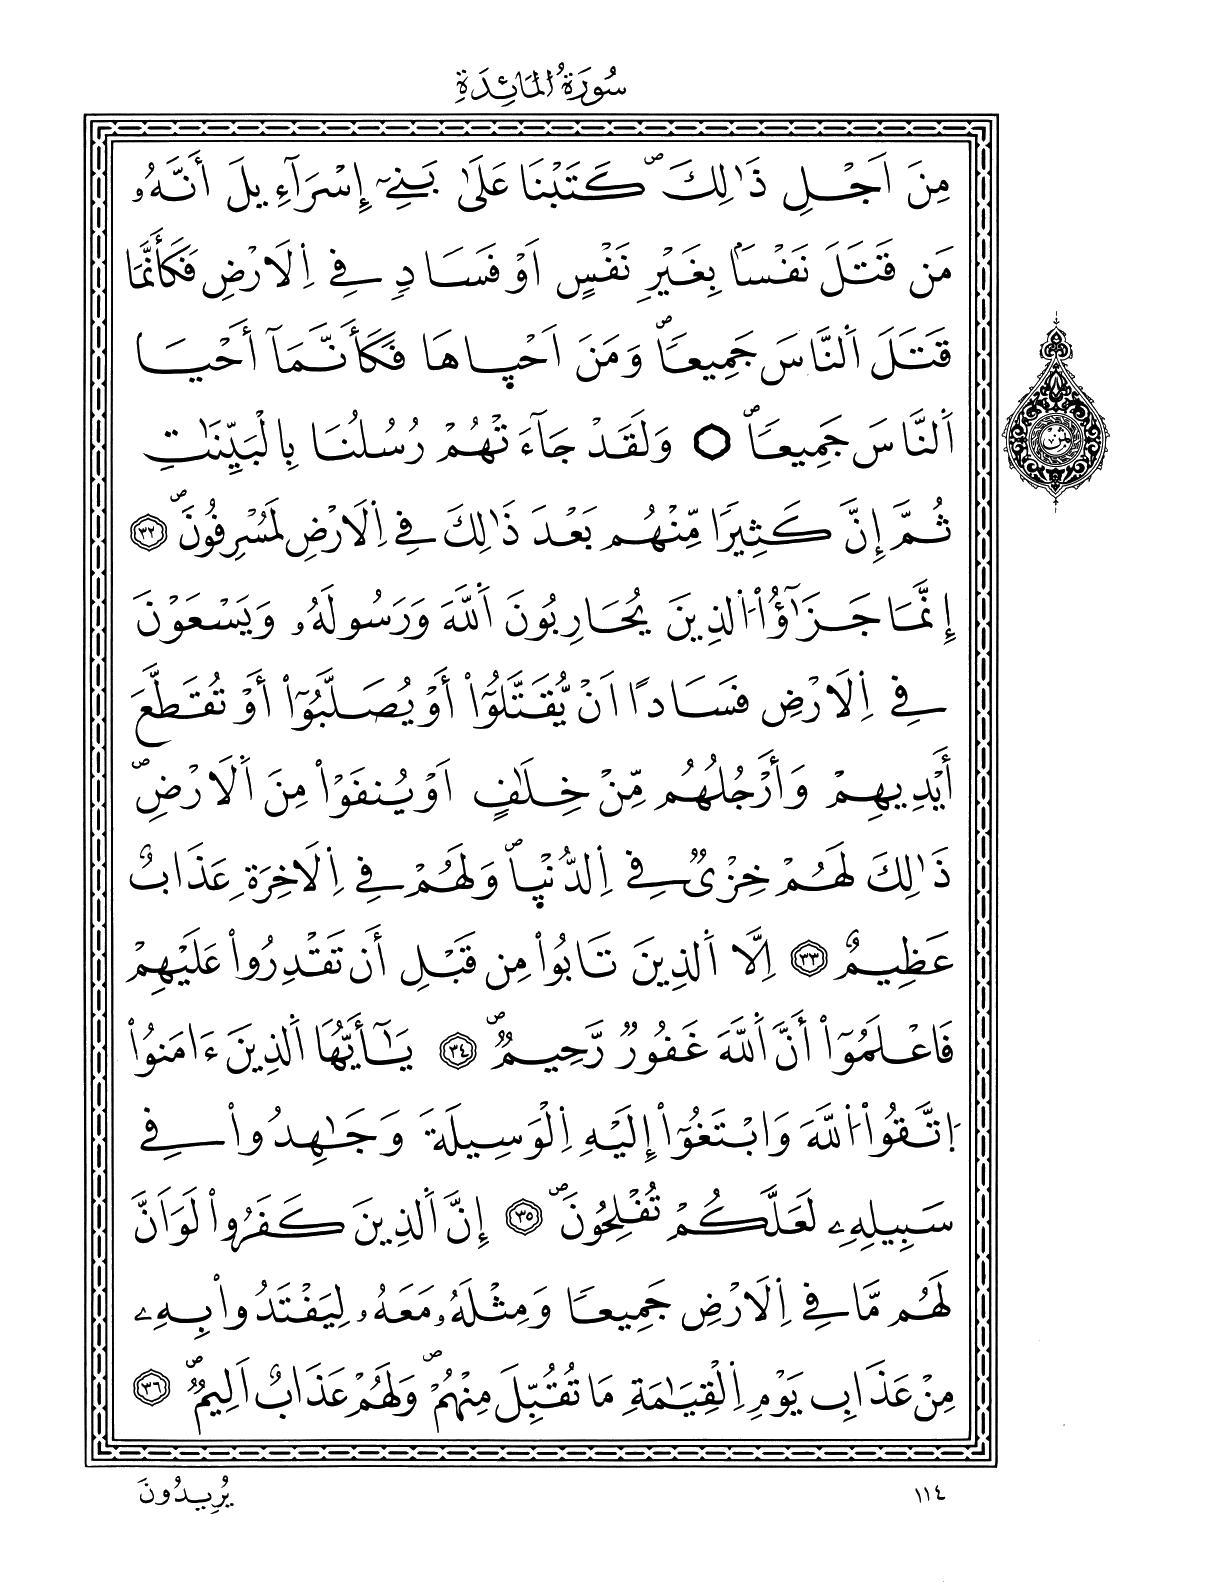 سُورَةُ الْمَائِدَةِ
مِنَ اَجْلِ ذَٰلِكَۖ كَتَبْنَا عَلَىٰ بَنِےٓ إِسْرَآءِيلَ أَنَّهُۥ
مَن قَتَلَ نَفْساَۢ بِغَيْرِ نَفْسٍ اَوْ فَسَادٖ فِے اِ۬لَارْضِ فَكَأَنَّمَا
قَتَلَ اَ۬لنَّاسَ جَمِيعاٗۖ وَمَنَ اَحْي۪اهَا فَكَأَنَّمَآ أَحْيَا
اَ۬لنَّاسَ جَمِيعاٗۖ ۝ وَلَقَدْ جَآءَتْهُمْ رُسُلُنَا بِالْبَيِّنَٰتِ
ثُمَّ إِنَّ كَثِيراٗ مِّنْهُم بَعْدَ ذَٰلِكَ فِے اِ۬لَارْضِ لَمُسْرِفُونَۖ ٣٢
إِنَّمَا جَزَٰٓؤُاْ اُ۬لذِينَ يُحَارِبُونَ اَ۬للَّهَ وَرَسُولَهُۥ وَيَسْعَوْنَ
فِے اِ۬لَارْضِ فَسَاداً اَنْ يُّقَتَّلُوٓاْ أَوْ يُصَلَّبُوٓاْ أَوْ تُقَطَّعَ
أَيْدِيهِمْ وَأَرْجُلُهُم مِّنْ خِلَٰفٍ اَوْ يُنفَوْاْ مِنَ اَ۬لَارْضِۖ
ذَٰلِكَ لَهُمْ خِزْيٞ فِے اِ۬لدُّنْي۪اۖ وَلَهُمْ فِے اِ۬لَاخِرَةِ عَذَابٌ
عَظِيمٌ ٣٣ اِلَّا اَ۬لذِينَ تَابُواْ مِن قَبْلِ أَن تَقْدِرُواْ عَلَيْهِمْ
فَاعْلَمُوٓاْ أَنَّ اَ۬للَّهَ غَفُورٞ رَّحِيمٞۖ ٣٤ يَٰٓأَيُّهَا اَ۬لذِينَ ءَامَنُواْ
اُ۪تَّقُواْ اُ۬للَّهَ وَابْتَغُوٓاْ إِلَيْهِ اِ۬لْوَسِيلَةَ وَجَٰهِدُواْ فِے
سَبِيلِهِۦ لَعَلَّكُمْ تُفْلِحُونَۖ ٣٥ إِنَّ اَ۬لذِينَ كَفَرُواْ لَوَ اَنَّ
لَهُم مَّا فِے اِ۬لَارْضِ جَمِيعاٗ وَمِثْلَهُۥ مَعَهُۥ لِيَفْتَدُواْ بِهِۦ
مِنْ عَذَابِ يَوْمِ اِ۬لْقِيَٰمَةِ مَا تُقُبِّلَ مِنْهُمْۖ وَلَهُمْ عَذَابٌ اَلِيمٞۖ ٣٦
ثمن
١١٤
يُرِيدُونَ